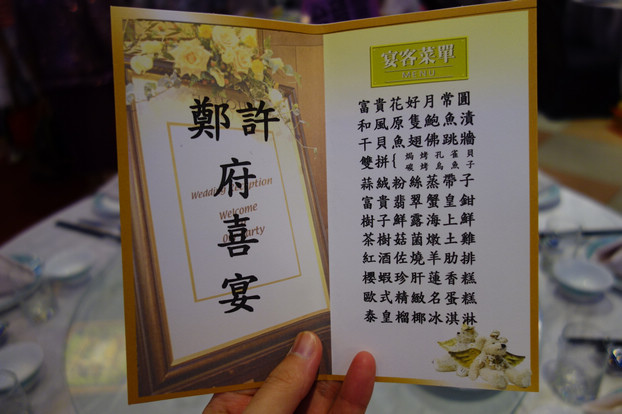 鄭許
府
喜
宴
Wedding Reception
Welcome
Party
宴客菜單
MENU
富貴花好月常圓
和風原隻鮑魚漬
干貝魚翅佛跳牆
雙拼{焗烤孔雀貝
碳烤烏魚子
蒜絨粉絲蒸帶子
富貴翡翠蟹皇鉗
樹子鮮露海上鮮
茶樹菇菌燉土雞
紅酒佐燒羊肋排
櫻蝦珍肝蓮香糕
歐式精緻名蛋糕
泰皇榴椰冰淇淋